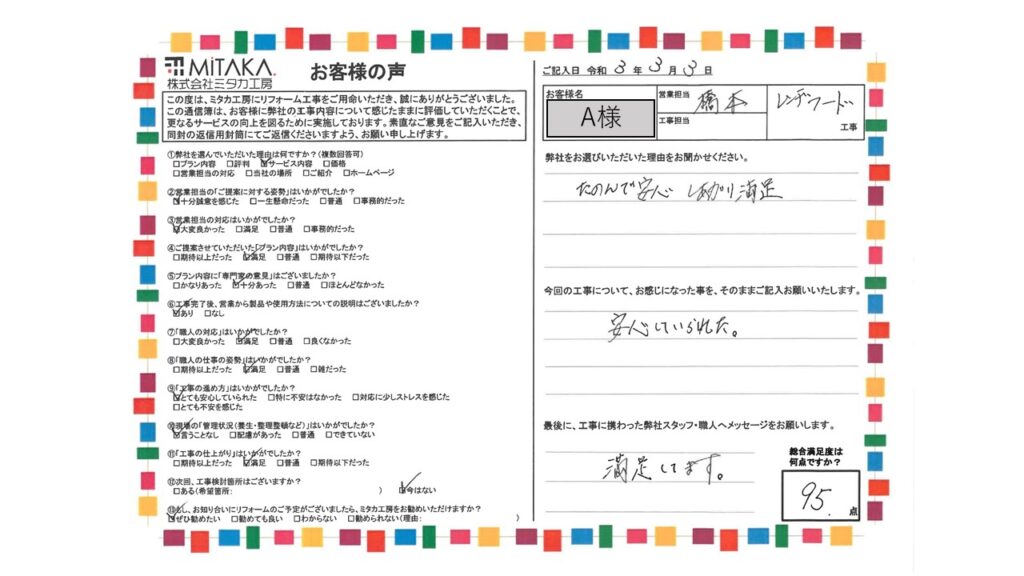 MiTAKA
株式会社ミタカ工房
お客様の声
この度は、ミタカ工房にリフォーム工事をご用命いただき、誠にありがとうございました。
この通信簿は、お客様に弊社の工事内容について感じたままに評価していただくことで、
更なるサービスの向上を図るために実施しております。率直なご意見をご記入いただき、
同封の返信用封筒にてご返信くださいますよう、お願い申し上げます。
①弊社を選んでいただいた理由は何ですか？(複数回答可)
□プラン内容 □評判 ☑サービス内容 □価格
□営業担当の対応 □当社の場所 □ご紹介 □ホームページ
②営業担当の「ご提案に対する姿勢」はいかがでしたか？
☑十分誠意を感じた □一生懸命だった □普通 □事務的だった
③営業担当の対応はいかがでしたか？
☑大変良かった □満足 □普通 □事務的だった
④ご提案させていただいた「プラン内容」はいかがでしたか？
□期待以上だった ☑満足 □普通 □期待以下だった
⑤プラン内容に「専門家の意見」はございましたか？
□かなりあった ☑十分あった □普通 □ほとんどなかった
⑥工事完了後、営業から製品や使用方法についての説明はございましたか？
☑あり □なし
⑦「職人の対応」はいかがでしたか？
□大変良かった ☑満足 □普通 □良くなかった
⑧「職人の仕事の姿勢」はいかがでしたか？
□期待以上だった ☑満足 □普通 □雑だった
⑨「工事の進め方」はいかがでしたか？
☑とても安心していられた □特に不安はなかった □対応に少しストレスを感じた
□とても不安を感じた
⑩現場の「管理状況(養生・整理整頓など)」はいかがでしたか？
☑言うことなし □配慮があった □普通 □できていない
⑪「工事の仕上がり」はいかがでしたか？
□期待以上だった ☑満足 □普通 □期待以下だった
⑫次回、工事検討箇所はございますか？
□ある(希望箇所: ) ☑今はない
⑬もし、お知り合いにリフォームのご予定がございましたら、ミタカ工房をお勧めいただけますか？
☑ぜひ勧めたい □勧めても良い □わからない □勧められない(理由: )
ご記入日 令和 3 年 3 月 3 日
お客様名 A様 営業担当 橋本 レンジフード
工事担当 工事
弊社をお選びいただいた理由をお聞かせください。
たのんで安心 しあがり満足
今回の工事について、お感じになった事を、そのままご記入お願いいたします。
安心していられた。
最後に、工事に携わった弊社スタッフ・職人へメッセージをお願いします。
満足してます。
総合満足度は
何点ですか？
95. 点